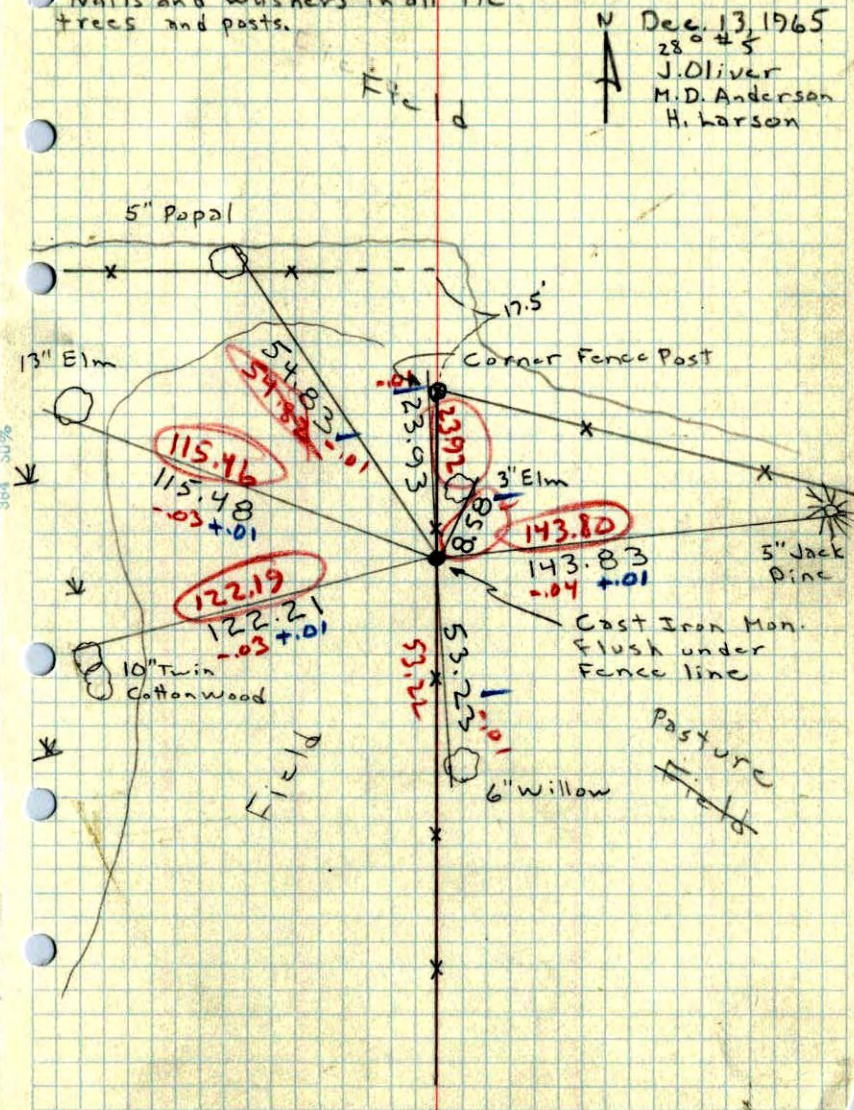 Nails and washers in all tie
trees and posts.
N
Dec. 13, 1965
28° #5
J. Oliver
M.D. Anderson
H. Larson
Field
5" Popal
17.5'
Corner Fence Post
13" Elm
54.83
54.82
-.01
23.93
23.92
3" Elm
8.58
115.46
115.48
-.03 +.01
143.80
143.83
-.04 +.01
5" Jack
Pine
122.19
122.21
-.03 +.01
Cast Iron Mon.
Flush under
Fence line
10" Twin
Cottonwood
53.22
53.23
-.01
Field
Pasture
Field
6" Willow